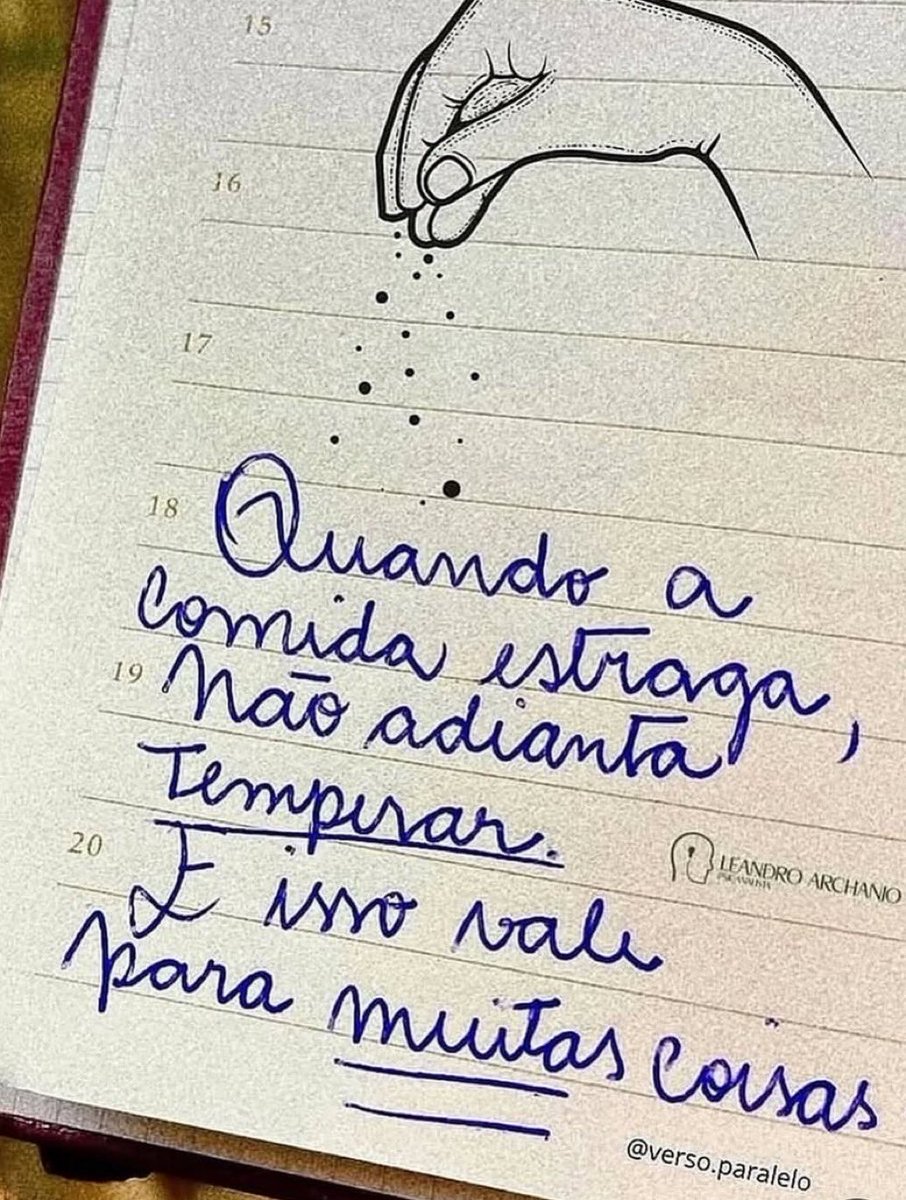 15
16
17
18
Quando a
comida estraga,
19
Não adianta
Temperar.
20
LEANDRO ARCHANJO
PSICANALISTA
E isso vale
para muitas coisas
@verso.paralelo